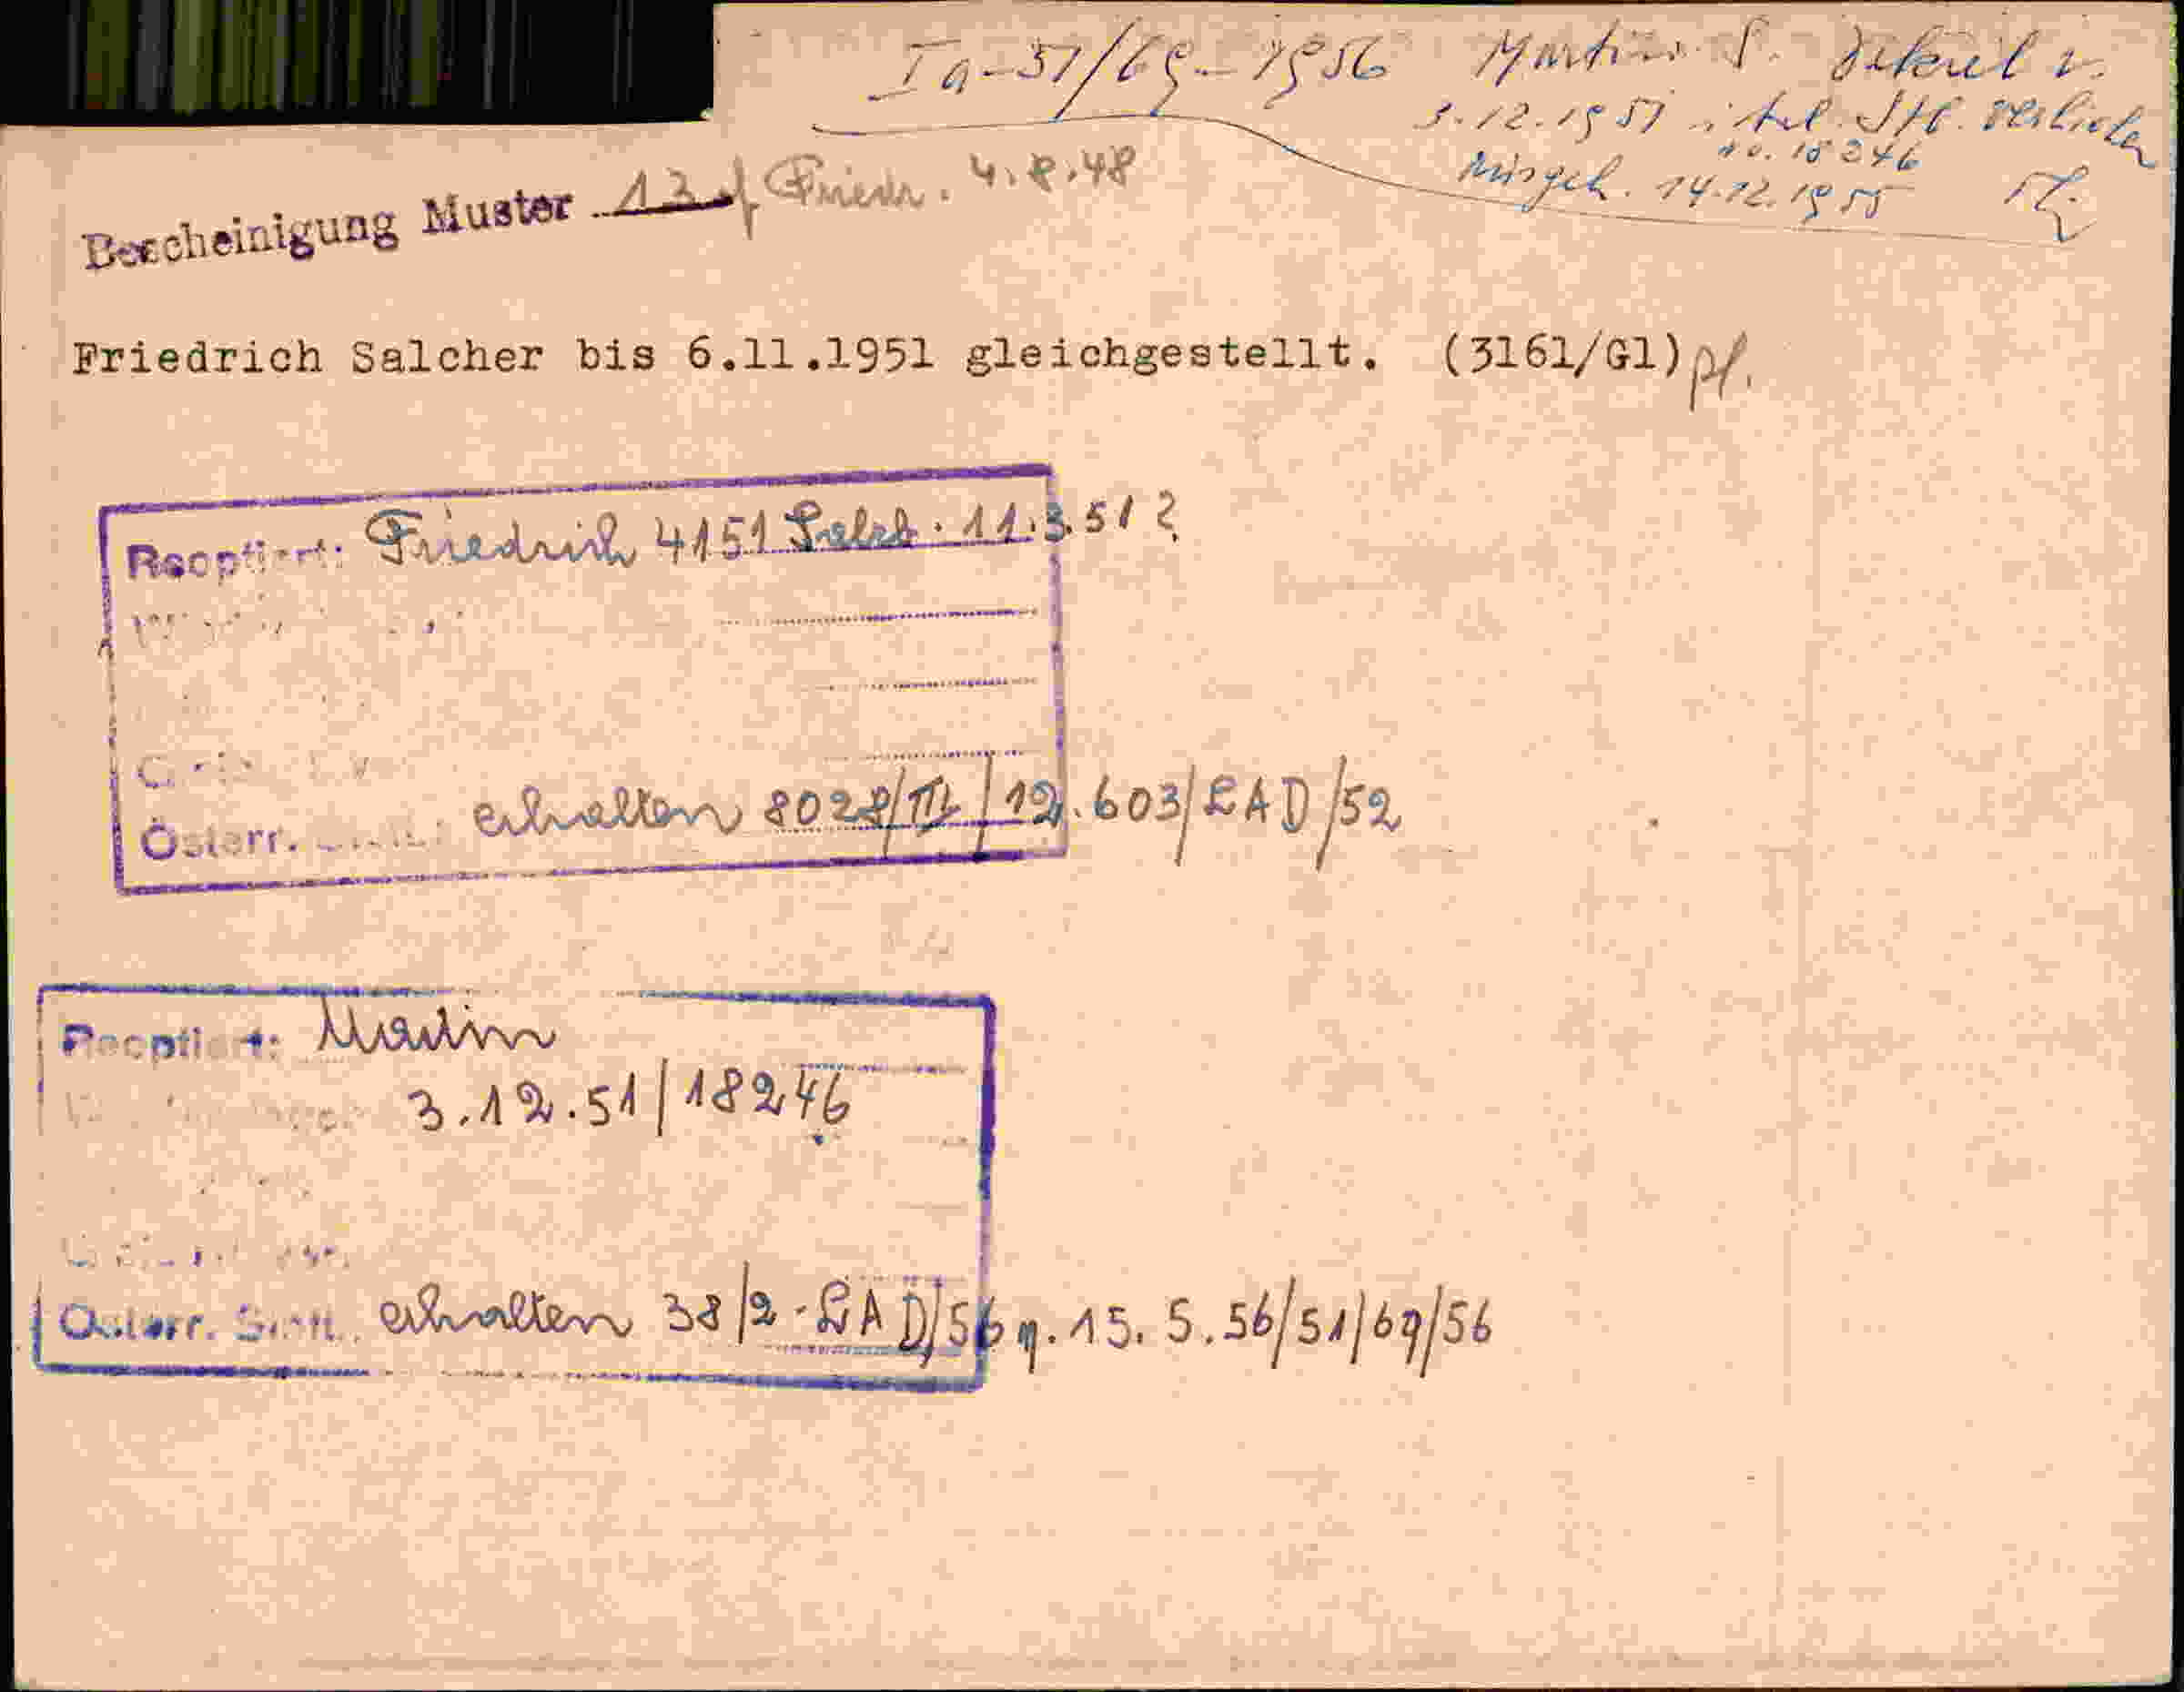 Ia-51/69-1956 Martin S. Dekret v.
3.12.1951 ital. Stb. verliehen
No. 18246
Ausgeh. 14.12.1955
Bescheinigung Muster 13 f Friedr. 4.8.48
Friedrich Salcher bis 6.11.1951 gleichgestellt. (3161/Gl) pf.
Reoptiert: Friedrich 4151 Salzb. 11.3.51?
Österr. erhalten 8028/III/12.603/LAD/52
Reoptiert: Martin
3.12.51/18246
Österr. Sta. erhalten 38/2-LAD/56 v. 15.5.56/51/69/56